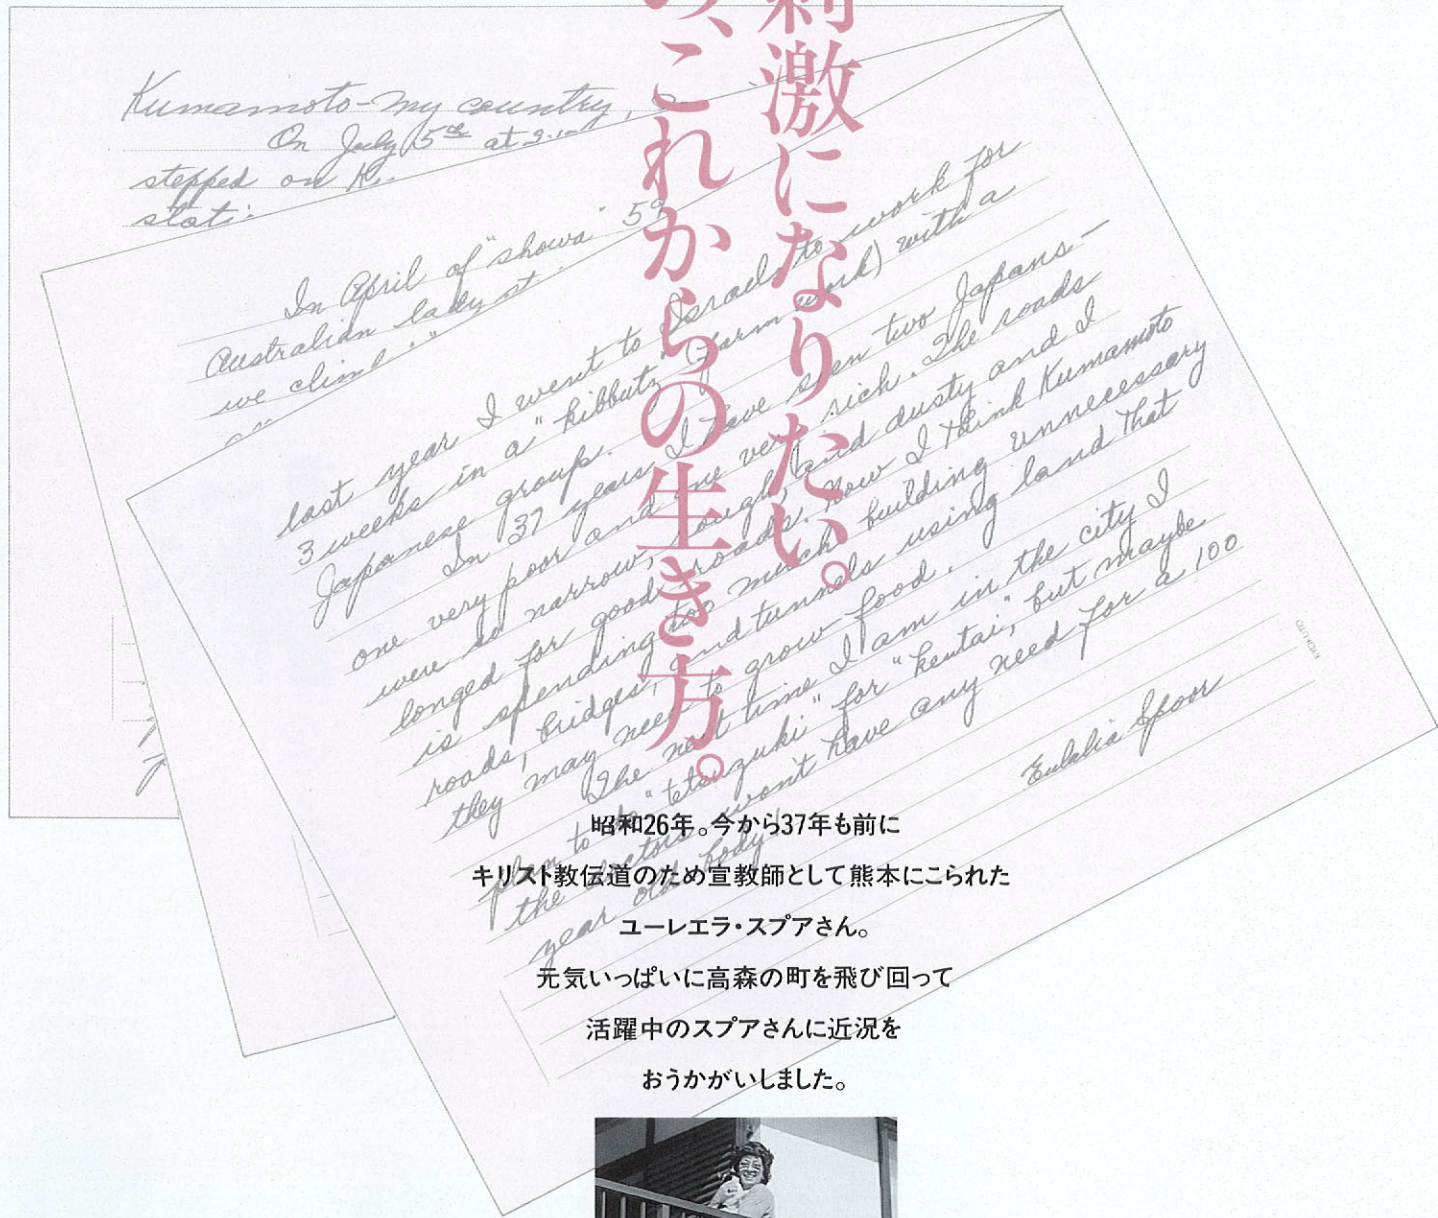 刺激になりたい。
、これからの生き方。
Kumamoto - My country,
On July 5th at
stepped on
In April of "showa" 59
Australian lady
we climb
last year I went to Israel to work for
3 weeks in a "kibbutz" (farm work) with a
Japanese group.
In 37 years I have seen two Japans -
one very poor and one very rich. The roads
were so narrow, rough, and dusty and I
longed for good roads. Now I think Kumamoto
is spending too much building unnecessary
roads, bridges, and tunnels using land that
they may need to grow food.
The next time I am in the city I
plan to do "tetsuzuki" for "kentai," but maybe
the doctors won't have any need for a 100
year old body.
Spoor
KOKUYO
昭和26年。今から37年も前に
キリスト教伝道のため宣教師として熊本にこられた
ユーレエラ・スプアさん。
元気いっぱいに高森の町を飛び回って
活躍中のスプアさんに近況を
おうかがいしました。